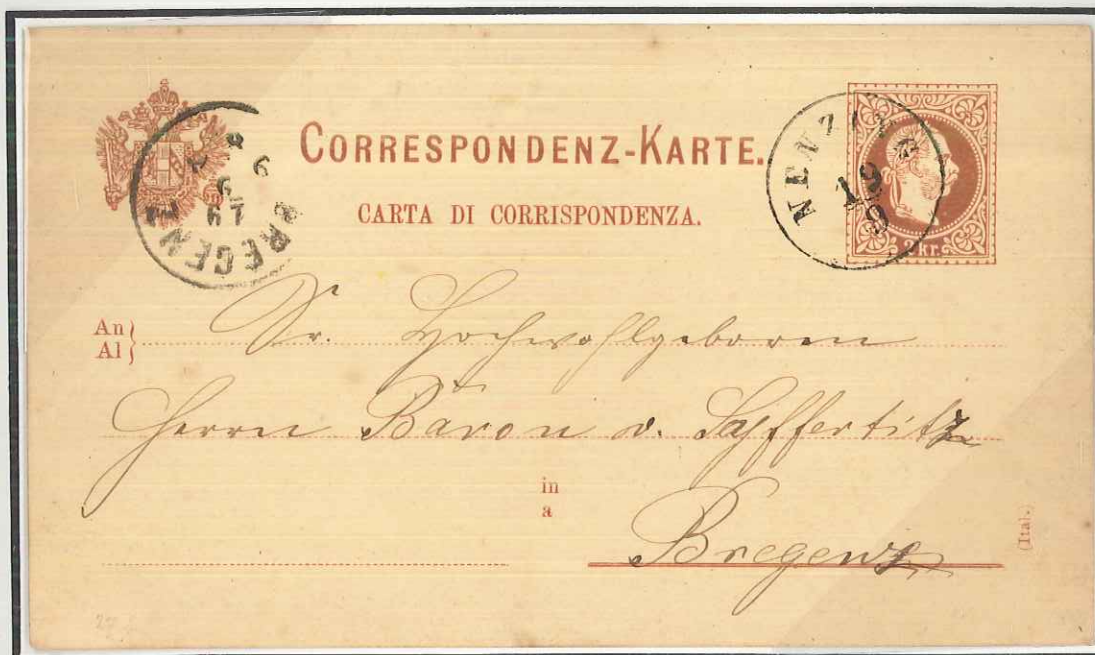 CORRESPONDENZ-KARTE.
CARTA DI CORRISPONDENZA.
NENZING
19
9
2 kr.
BREGENZ
19
9
An
Al
Sr. Hochwohlgeboren
Herrn Baron v. Seyffertitz
in
a
Bregenz
(Ital.)